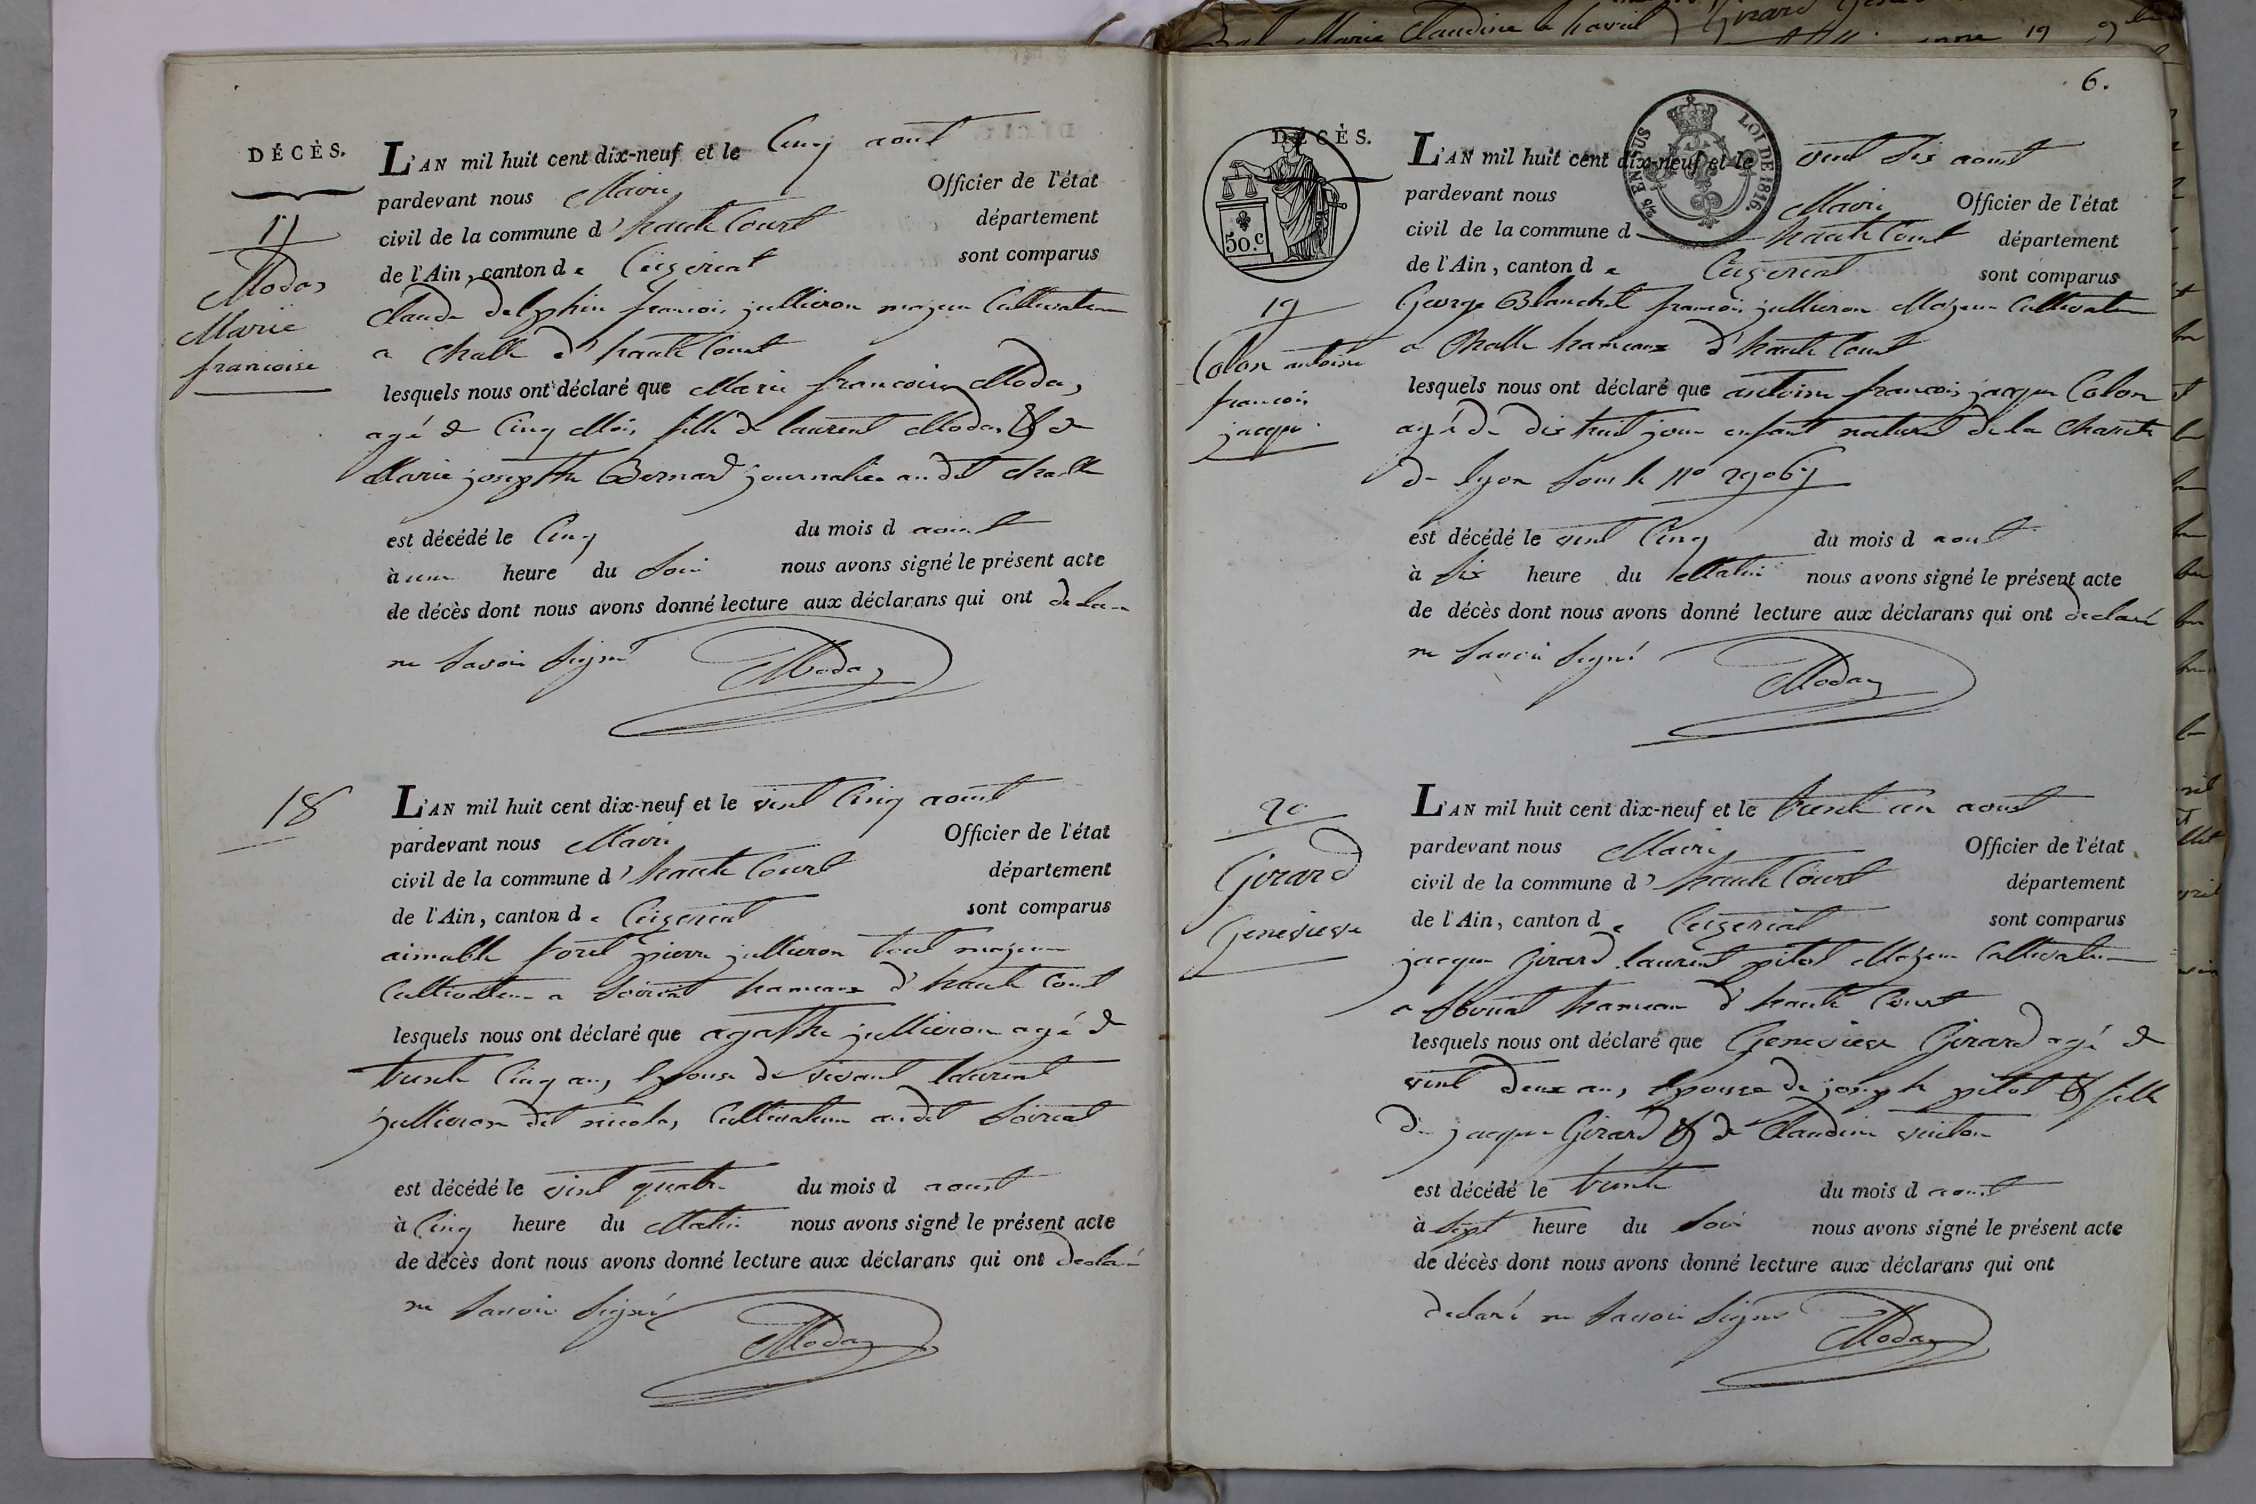 DÉCÈS.
17
Modas
Marie
francoise
L'AN mil huit cent dix-neuf et le Cinq aout
pardevant nous Maire Officier de l'état
civil de la commune d'haute Court département
de l'Ain, canton de Ceÿzeriat sont comparus
Claude delphin francois jullieron majeur Cultivateur
a Challe d'haute Court
lesquels nous ont déclaré que Marie francoise Modas
agé de Cinq Mois fille de laurent Modas & de
Marie josephte Bernard journalier audit Challe
est décédé le Cinq du mois d aout
à une heure du Soir nous avons signé le présent acte
de décès dont nous avons donné lecture aux déclarans qui ont
ne Savoir Signé
Modas
18
L'AN mil huit cent dix-neuf et le vint Cinq aout
pardevant nous Maire Officier de l'état
civil de la commune d'haute Court département
de l'Ain, canton de Ceÿzeriat sont comparus
aimable forêt pierre jullieron tout majeur
Cultivateur a Soiriat hameaux d'haute Court
lesquels nous ont déclaré que agathe jullieron agé de
trente Cinq ans Epouse de vivant laurent
jullieron dit nicolas Cultivateur audit Soiriat
est décédé le vint quatre du mois d aoust
à Cinq heure du Matin nous avons signé le présent acte
de décès dont nous avons donné lecture aux déclarans qui ont déclaré
ne Savoir Signé
Modas
6.
DÉCÈS.
50.c
S/S EN SUS
LOI DE 1816.
19
Colon antoine
francois
jacque
L'AN mil huit cent dix-neuf et le vint Six aout
pardevant nous Maire Officier de l'état
civil de la commune d haute Court département
de l'Ain, canton de Ceÿzeriat sont comparus
George Blanchet francois jullieron Majeur Cultivateur
a Challe hameaux d'haute Court
lesquels nous ont déclaré que antoine francois jacque Colon
agé de dix huit jour enfant naturel de la Charité
de lyon Sous le No 29067
est décédé le vint Cinq du mois d aout
à Six heure du Matin nous avons signé le présent acte
de décès dont nous avons donné lecture aux déclarans qui ont declaré
ne Savoir Signé
Modas
20
Girard
Genevieve
L'AN mil huit cent dix-neuf et le trente un aoust
pardevant nous Maire Officier de l'état
civil de la commune d'haute Court département
de l'Ain, canton de Ceÿzeriat sont comparus
jacque Girard laurent pitot Majeur Cultivateur
a hameau d'haute Court
lesquels nous ont déclaré que Genevieve Girard agé de
vint deux ans Epouse de joseph pitot & fille
de jacque Girard & de Claudine
est décédé le trente du mois d aout
à Sept heure du Soir nous avons signé le présent acte
de décès dont nous avons donné lecture aux déclarans qui ont
declaré ne Savoir Signé
Modas